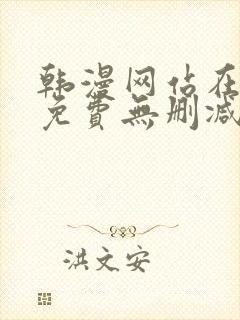 韩漫网佔在
免費無删减
洪文安